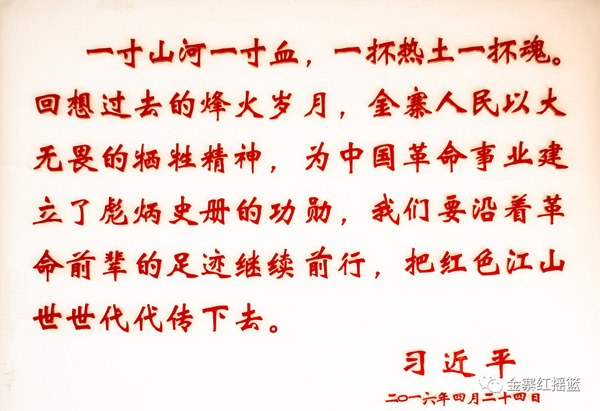 一寸山河一寸血，一抔热土一抔魂。
回想过去的烽火岁月，金寨人民以大
无畏的牺牲精神，为中国革命事业建
立了彪炳史册的功勋，我们要沿着革
命前辈的足迹继续前行，把红色江山
世世代代传下去。
习近平
二〇一六年四月二十四日
金寨红摇篮